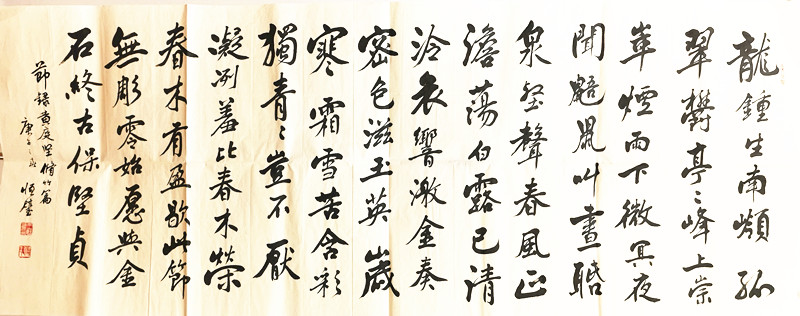 龍鍾生南 孤
翠欝亭〻峰上崇
崒煙雨下微冥夜
聞鼯鼠叫晝聒
泉壑聲春風正
澹蕩白露已清
泠哀響激金奏
密色滋玉英歲
寒霜雪苦含彩
獨青〻豈不厭
凝冽羞比春木榮
春木有盈歇此節
無彫零始願與金
石終古保堅貞
節錄黃庭堅脩竹篇
庚子之秋 恒